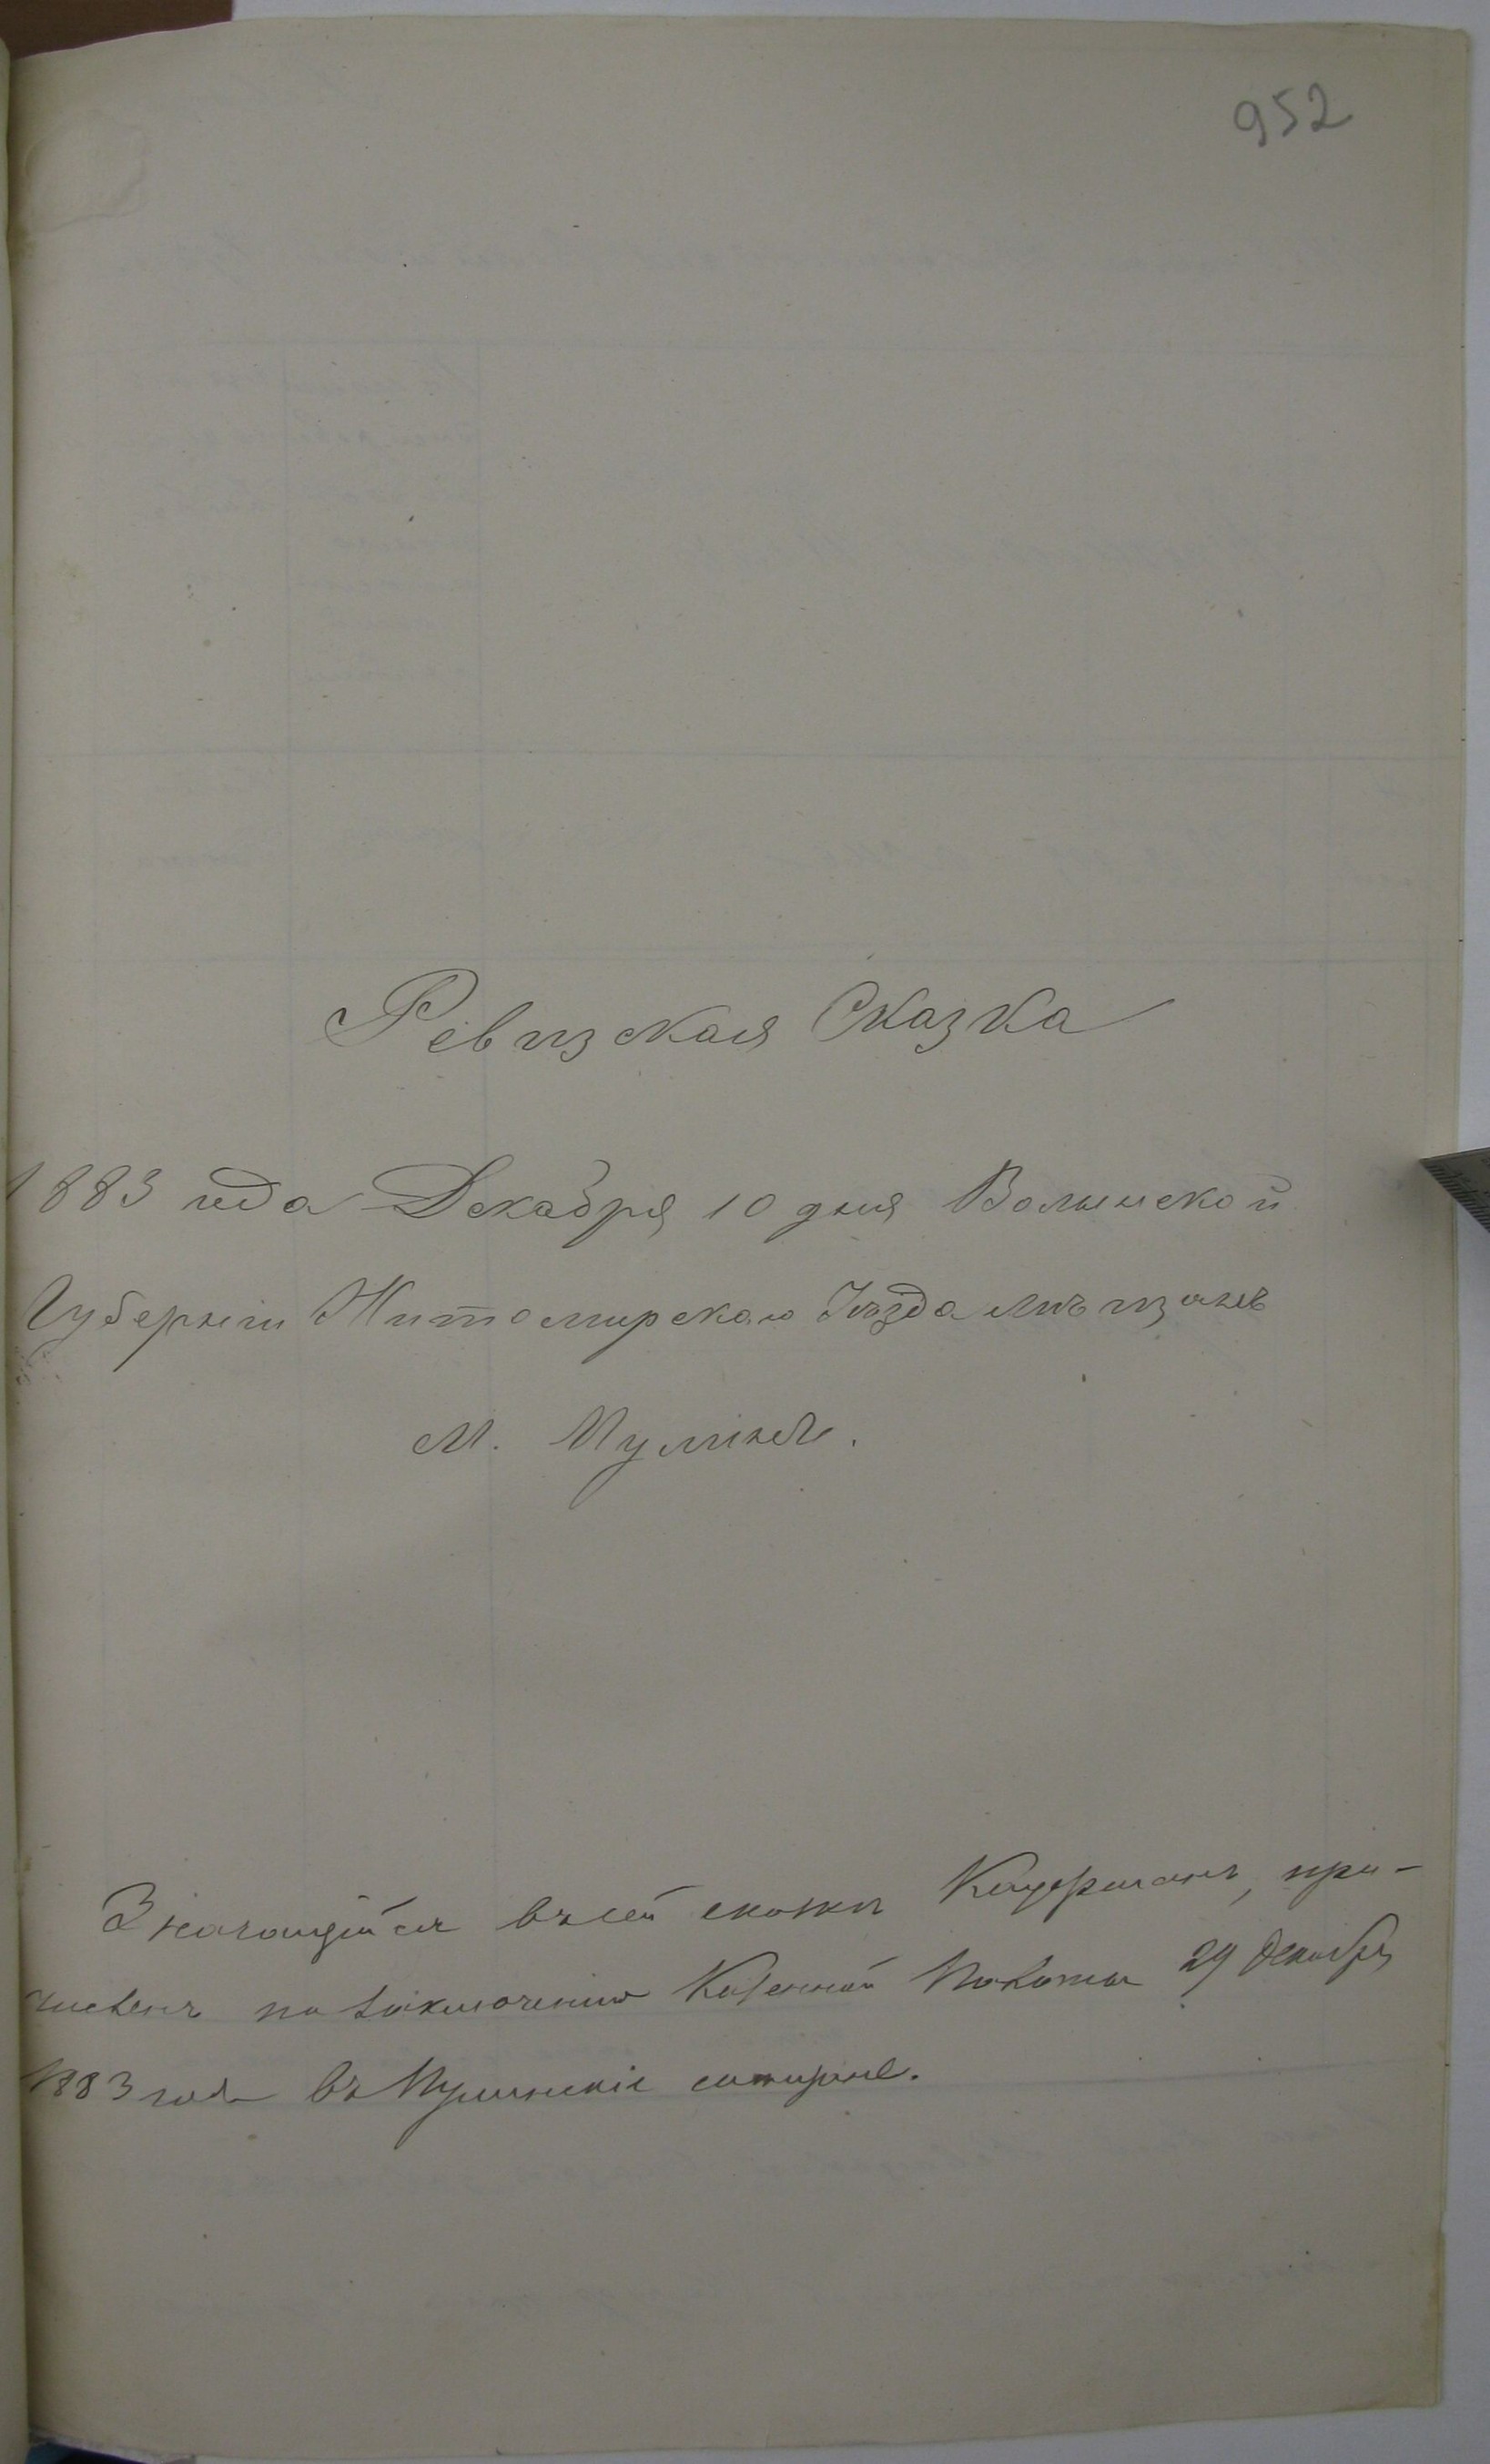 952
Ревизская Сказка
1883 года Декабря 10 дня Волынской
Губернiи Житомирскаго Уѣзда мѣщанъ
М. Пулинъ.
Значащiйся въ сей сказкѣ Кауфманъ, при-
численъ по заключенiю Казенной Палаты 29 Декабря
1883 года въ Пулинскiе мѣщане.